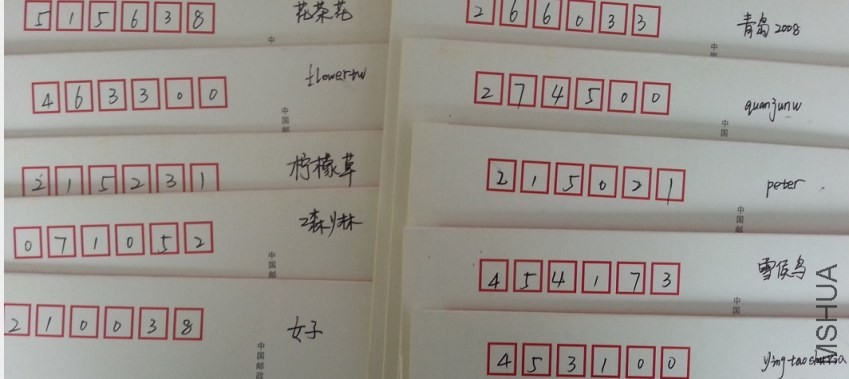 515638 花茶花
中
463300 flowersw
中国邮
215231 柠檬草
071052
中国邮
210038 女子
中国邮政
266033 青岛2008
中
274500 quanjunw
中国
215021 peter
中国邮
454173 雪候鸟
中国
453100
MSHUA